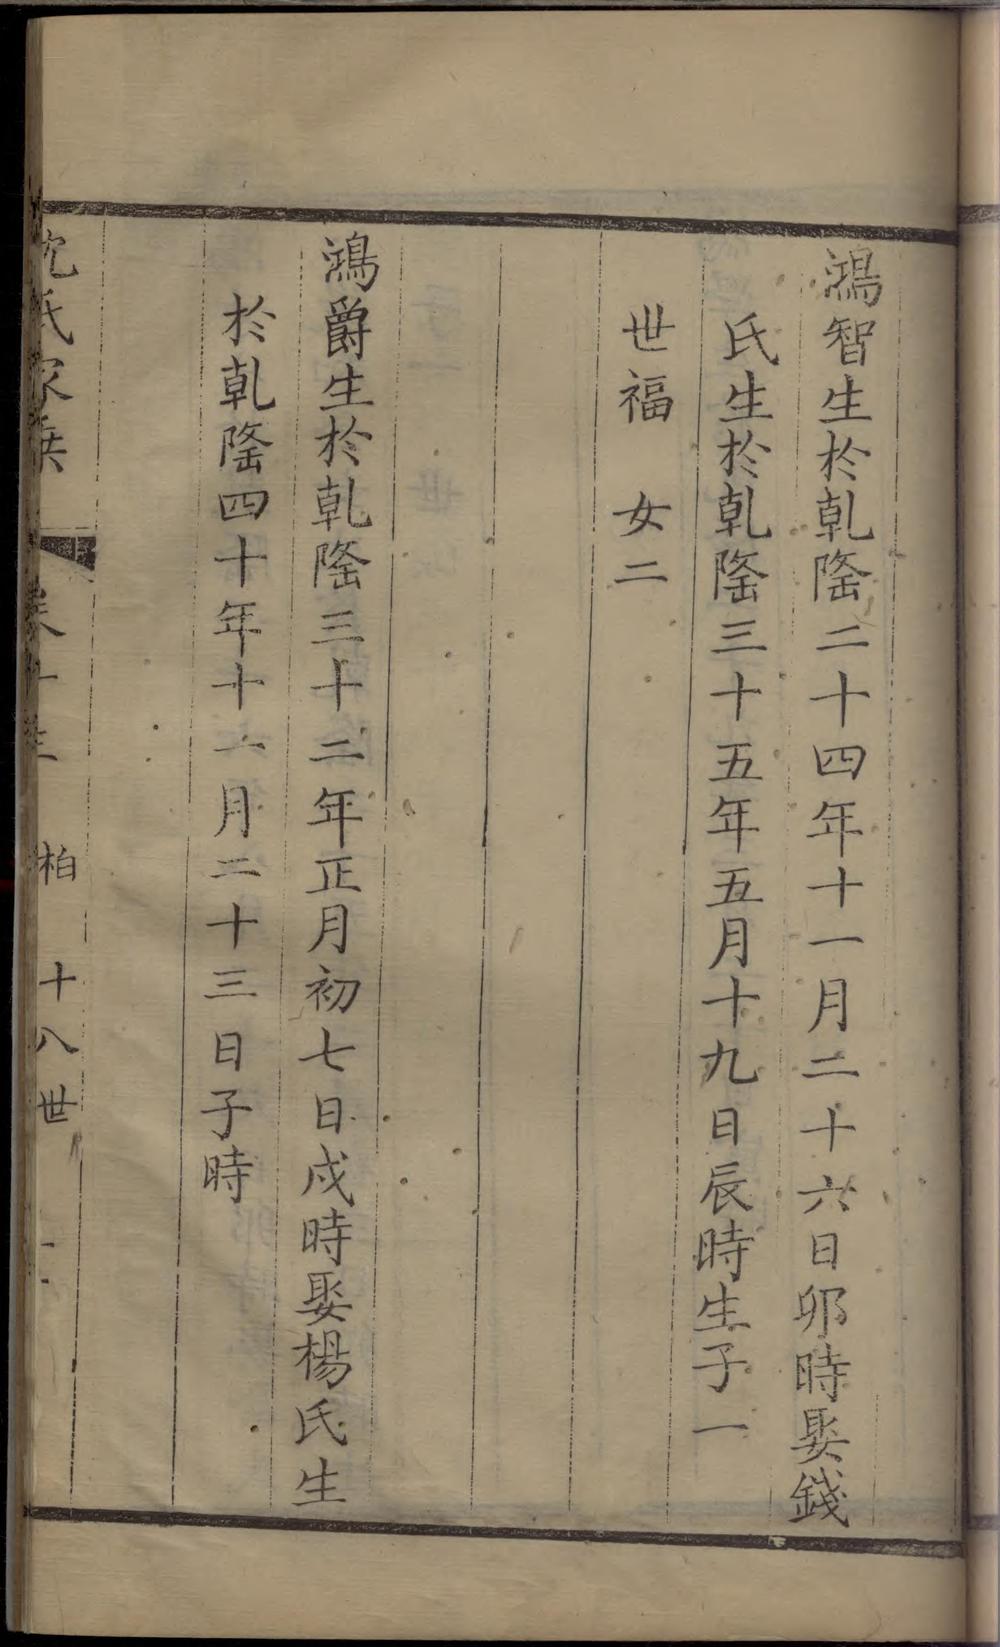 鴻智生於乹隆二十四年十一月二十六日卯時娶錢
氏生於乹隆三十五年五月十九日辰時生子一
世福　女二
鴻爵生於乹隆三十二年正月初七日戍時娶楊氏生
於乹隆四十年十一月二十三日子時
沈氏家乗　卷十三　柏　十八世